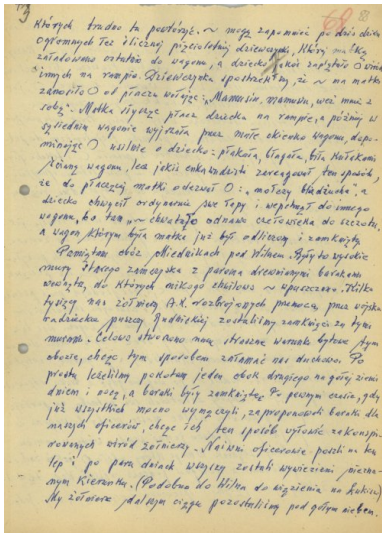 13
68
których trudno tu powtórzyć. ~ mogę zapomnieć po dziś dzień
ogromnych łez ślicznej pięcioletniej dziewczynki, której matkę
załadowano ostatnio do wagonu, a dziecko jakoś zaplątało
innych na rampie. Dziewczynka spostrzegłszy, że ~ ma matki
zanosiło od płaczu wołając: „Mamusiu, mamusiu, weź mnie z
sobą”. Matka słysząc płacz dziecka na rampie, a później w
sąsiednim wagonie wyjrzała przez małe okienko wagonu, dopo-
minając usilnie o dziecko: płakała, błagała, biła kułakami
ściany wagonu, lecz jakiś enkawudzista zareagował ten sposób,
że do płaczącej matki odezwał: „mołczy bladziuha”, a
dziecko chwycił ordynarnie swe łapy i wepchnął do innego
wagonu, bo tam ~ człowieka do
a wagon którym była matka już był odliczony i zamknięty
Pamiętam obóz Miednikach pod Wilnem. Były to wysokie
mury starego zamczyska z paroma drewnianymi barakami
wewnątrz, do których nikogo chwilowo ~ wpuszczano. Kilka
tysięcy nas żołnierzy A.K. rozbrojonych przemocą przez wojska
radzieckie puszczy Rudnickiej zostaliśmy zamknięci za tymi
murami. Celowo stworzono nam straszne warunki bytowe tym
obozie, chcąc tym sposobem załamać nas duchowo. Po
prostu leżeliśmy pokotem jeden obok drugiego na gołej ziemi
dniem i nocą, a baraki były zamknięte. Po pewnym czasie, gdy
już wszystkich mocno wymęczyli, zaproponowali baraki dla
naszych oficerów, chcąc ich ten sposób wyłowić zakonspi-
rowanych wśród żołnierzy. Naiwni oficerowie poszli na ten
lep i po paru dniach wszyscy zostali wywiezieni niezna-
nym kierunku. (Podobno do Wilna do więzienia na Łukiszki)
My żołnierze dalszym ciągu pozostaliśmy pod gołym niebem.